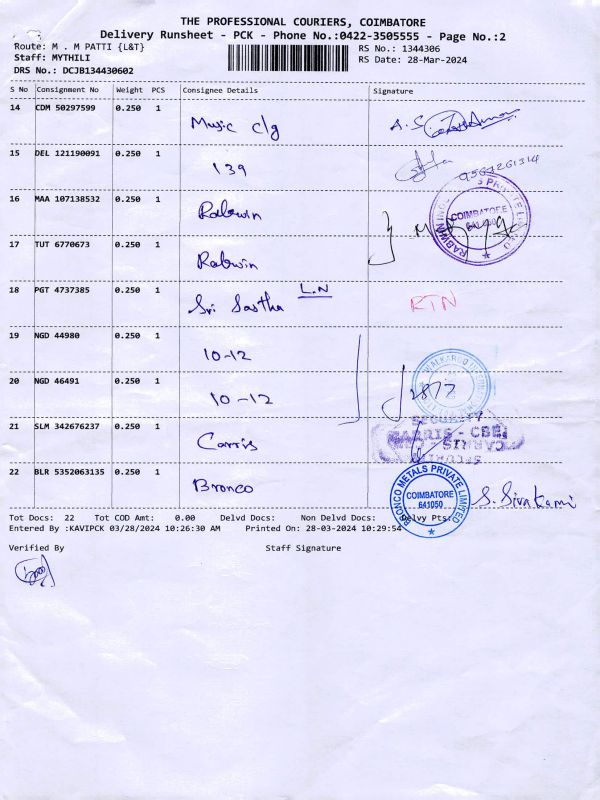 THE PROFESSIONAL COURIERS, COIMBATORE
Delivery Runsheet - PCK - Phone No.:0422-3505555 - Page No.:2
Route: M . M PATTI {L&T}
RS No.: 1344306
Staff: MYTHILI
RS Date: 28-Mar-2024
DRS No.: DCJB134430602
S No Consignment No Weight PCS Consignee Details Signature
14 CDM 50297599 0.250 1 Music c/g A. S.
15 DEL 121190091 0.250 1 139
16 MAA 107138532 0.250 1 Rabwin
COIMBATORE
641050
17 TUT 6770673 0.250 1 Rabwin
18 PGT 4737385 0.250 1 Sri Sastha L.N RTN
19 NGD 44980 0.250 1 10-12
20 NGD 46491 0.250 1 10-12 2877
SECURITY
21 SLM 342676237 0.250 1 Carris
CARRIS - CBE
22 BLR 5352063135 0.250 1 Bronco S. Sivakami
BRONCO METALS PRIVATE LIMITED
COIMBATORE
641050
Tot Docs: 22 Tot COD Amt: 0.00 Delvd Docs: Non Delvd Docs: Delvy Pts:
Entered By :KAVIPCK 03/28/2024 10:26:30 AM Printed On: 28-03-2024 10:29:54
Verified By Staff Signature